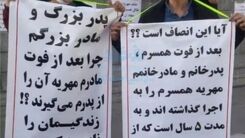 آیا این انصاف است ؟؟
بعد از فوت همسرم ،
پدرخانم و مادرخانمم
مهریه همسرم را به
اجرا گذاشته اند و به
مدت ۵ سال است که از
پدر بزرگ و
مادر بزرگم
چرا بعد از فوت
مادرم مهریه آن را
از پدرم می‌گیرند ؟!
زندگیمان را